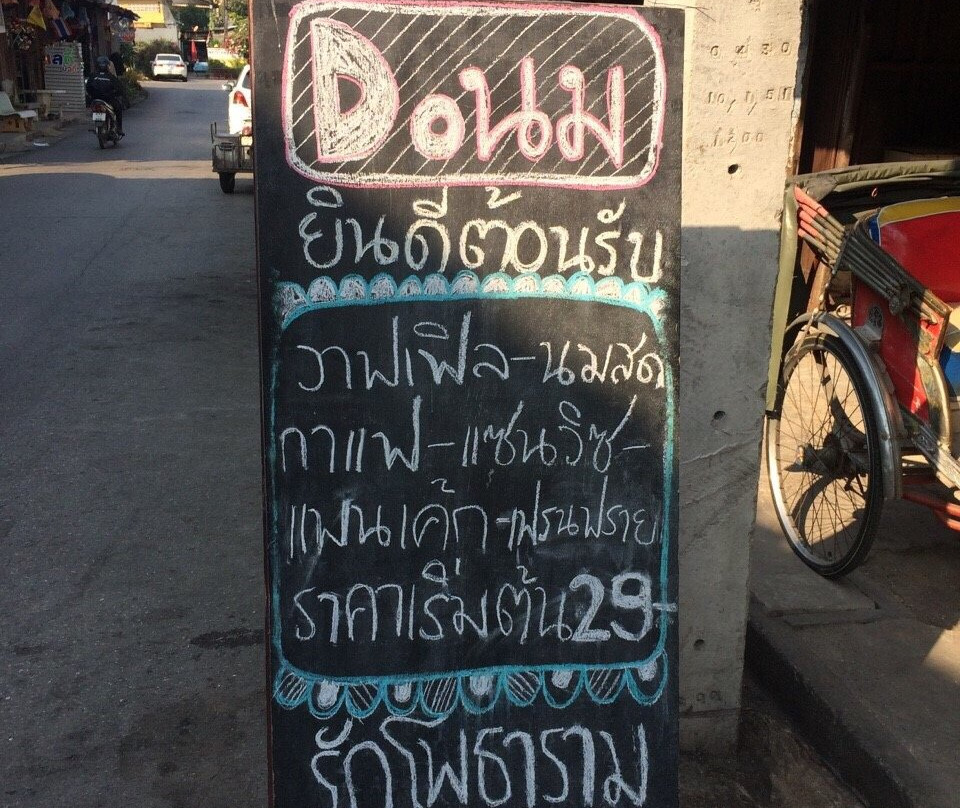 Doนม
ยินดีต้อนรับ
วาฟเฟิล-นมสด
กาแฟ-แซนวิซ-
แพนเค้ก-เฟรนฟราย
ราคาเริ่มต้น29-
รักโพธาราม